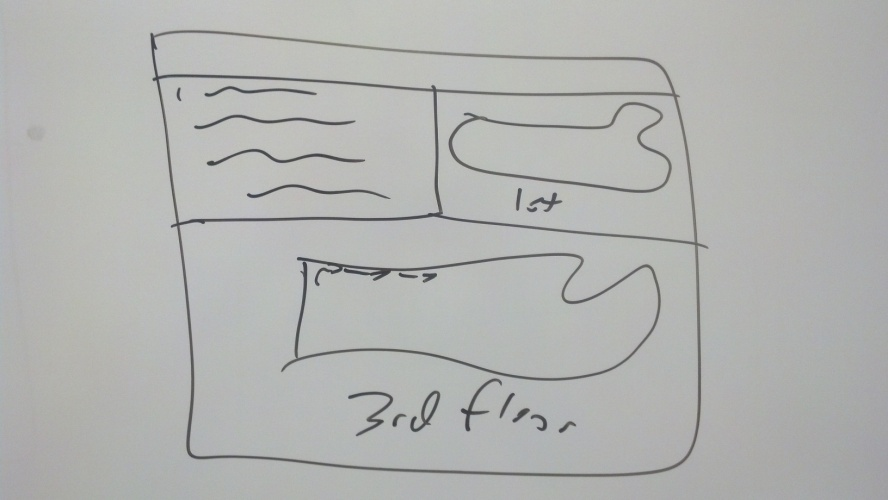 1st
3rd floor